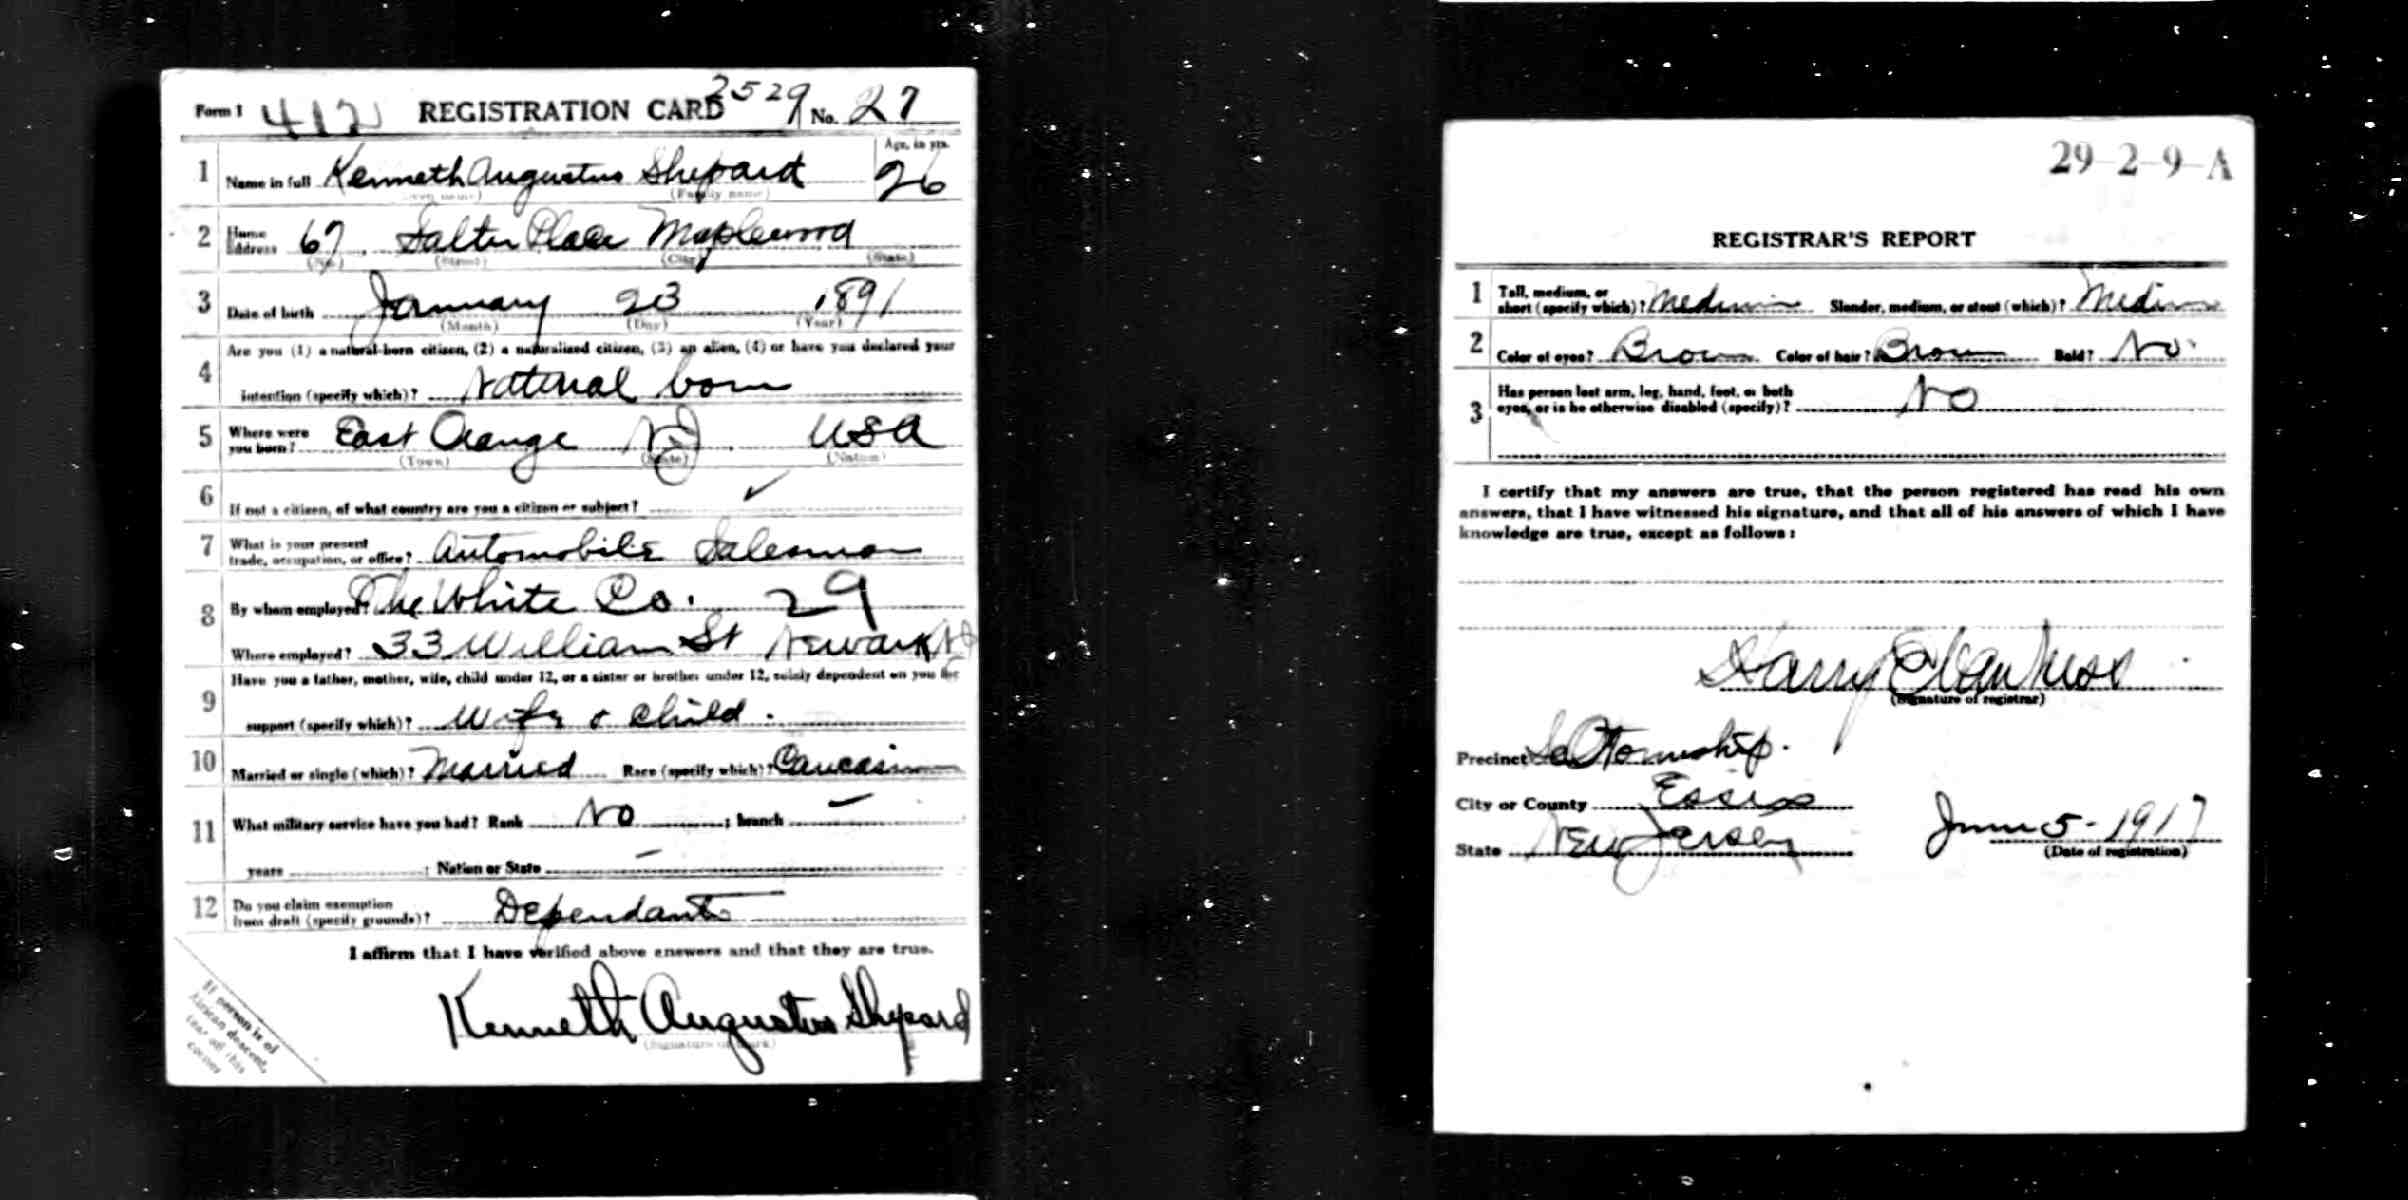 Form 1 412 REGISTRATION CARD 2529 No. 27
1 Name in full Kenneth Augustus Shepard Age, in yrs. 26
(Given name) (Family name)
2 Home address 67 Salter Place Maplewood
(No.) (Street) (City) (State)
3 Date of birth January 23 1891
(Month) (Day) (Year)
4 Are you (1) a natural-born citizen, (2) a naturalized citizen, (3) an alien, (4) or have you declared your
intention (specify which)? Natural born
5 Where were you born? East Orange NJ USA
(Town) (State) (Nation)
6 If not a citizen, of what country are you a citizen or subject?
7 What is your present trade, occupation, or office? Automobile Salesman
8 By whom employed? The White Co. 29
Where employed? 33 William St Newark NJ
9 Have you a father, mother, wife, child under 12, or a sister or brother under 12, solely dependent on you for
support (specify which)? Wife & child.
10 Married or single (which)? Married Race (specify which)? Caucasian
11 What military service have you had? Rank No ; branch —
years ; Nation or State —
12 Do you claim exemption from draft (specify grounds)? Dependants
I affirm that I have verified above answers and that they are true.
Kenneth Augustus Shepard
(Signature or mark)
If person is of
African descent,
tear off this
corner
29-2-9-A
REGISTRAR'S REPORT
1 Tall, medium, or short (specify which)? Medium Slender, medium, or stout (which)? Medium
2 Color of eyes? Brown Color of hair? Brown Bald? No
3 Has person lost arm, leg, hand, foot, or both
eyes, or is he otherwise disabled (specify)? No
I certify that my answers are true, that the person registered has read his own
answers, that I have witnessed his signature, and that all of his answers of which I have
knowledge are true, except as follows:
Harry
(Signature of registrar)
Precinct So O township.
City or County Essex
State New Jersey June 5-1917
(Date of registration)